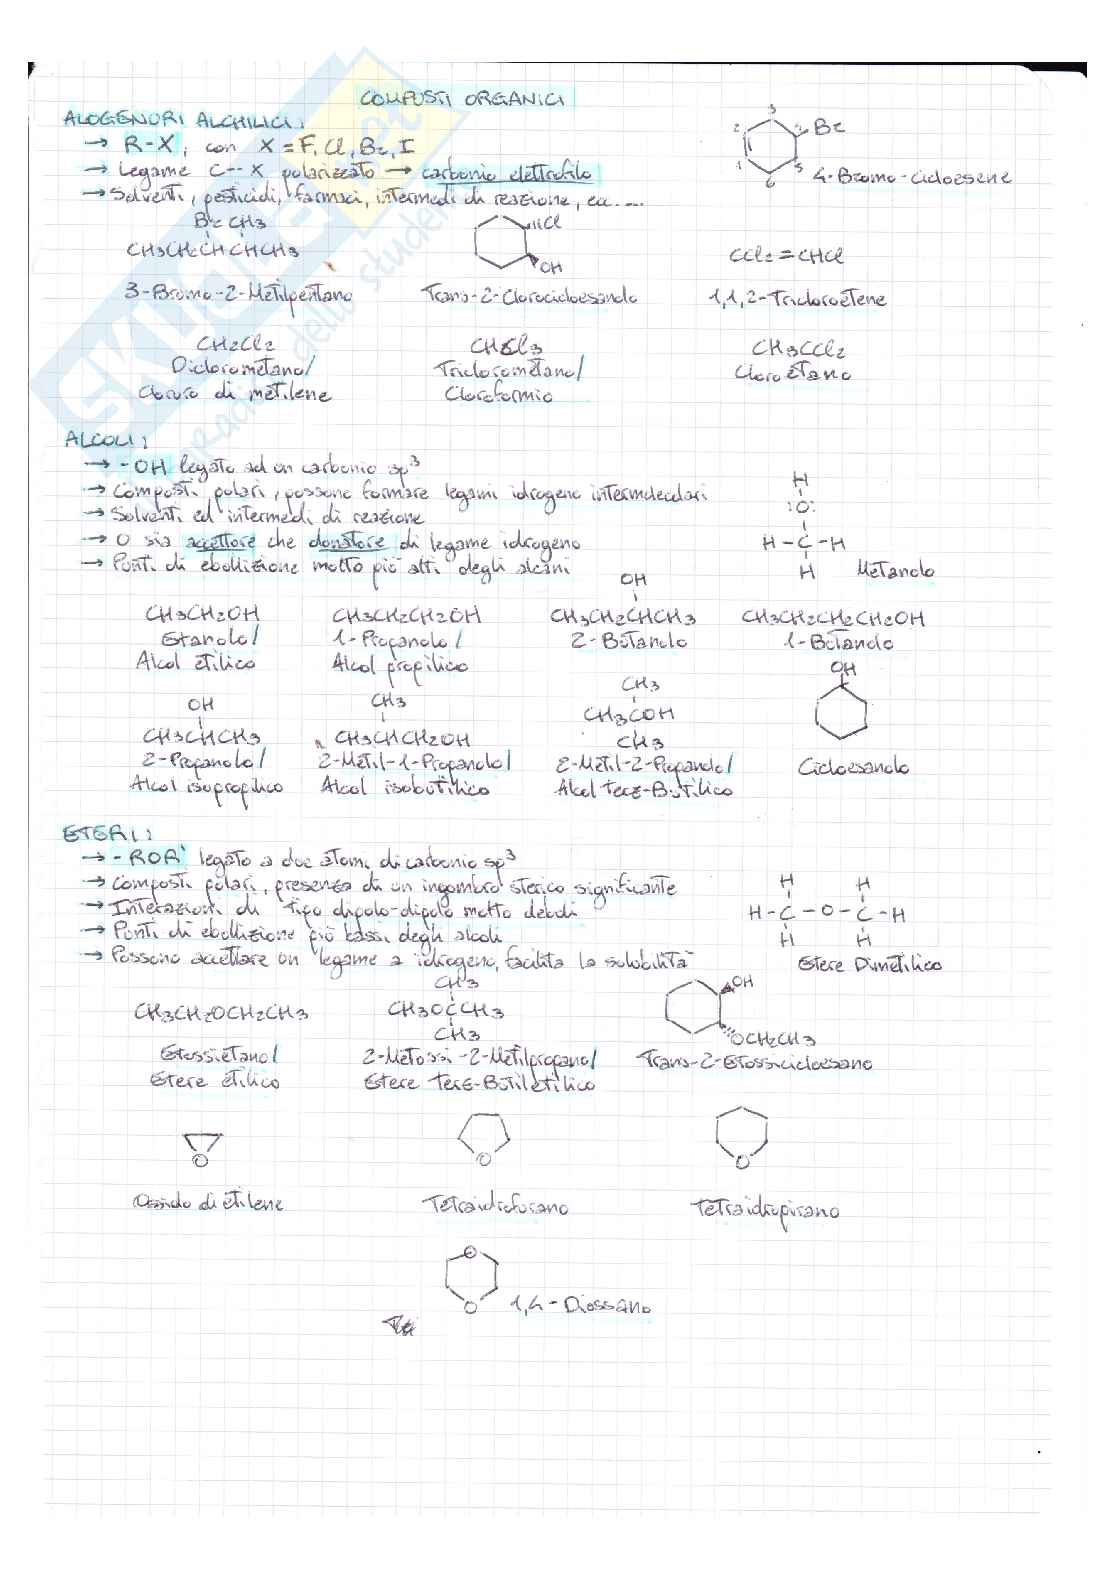 COMPOSTI ORGANICI
ALOGENURI ALCHILICI:
→ R-X, con X = F, Cl, Br, I
→ Legame C--X polarizzato → carbonio elettrofilo
→ Solventi, pesticidi, farmaci, intermedi di reazione, ecc....
1 2 3 4 5 6
Br
4-Bromo-Cicloesene
Br CH3
CH3CH2CHCHCH3
3-Bromo-2-Metilpentano
Cl
OH
Trans-2-Clorocicloesanolo
CCl2=CHCl
1,1,2-Tricloroetene
CH2Cl2
Diclorometano/
Cloruro di metilene
CHCl3
Triclorometano/
Cloroformio
CH3CCl2
Cloroetano
ALCOLI:
→ -OH legato ad un carbonio sp3
→ Composti polari, possono formare legami idrogeno intermolecolari
→ Solventi ed intermedi di reazione
→ O sia accettore che donatore di legame idrogeno
→ Punti di ebollizione molto più alti degli alcani
H
:O:
H-C-H
H
Metanolo
CH3CH2OH
Etanolo/
Alcol etilico
CH3CH2CH2OH
1-Propanolo/
Alcol propilico
OH
CH3CH2CHCH3
2-Butanolo
CH3CH2CH2CH2OH
1-Butanolo
OH
CH3CHCH3
2-Propanolo/
Alcol isopropilico
CH3
CH3CHCH2OH
2-Metil-1-Propanolo/
Alcol isobutilico
CH3
CH3COH
CH3
2-Metil-2-Propanolo/
Alcol terz-Butilico
OH
Cicloesanolo
ETERI:
→ -ROR' legato a due atomi di carbonio sp3
→ Composti polari, presenza di un ingombro sterico significante
→ Interazioni di tipo dipolo-dipolo molto deboli
→ Punti di ebollizione più bassi degli alcoli
→ Possono accettare un legame a idrogeno, facilita la solubilità
H H
H-C-O-C-H
H H
Etere Dimetilico
CH3CH2OCH2CH3
Etossietano/
Etere etilico
CH3
CH3OCCH3
CH3
2-Metossi-2-Metilpropano/
Etere terz-Butiletilico
OH
OCH2CH3
Trans-2-Etossicicloesano
O
Ossido di etilene
O
Tetraidrofurano
O
Tetraidropirano
O
O
1,4-Diossano